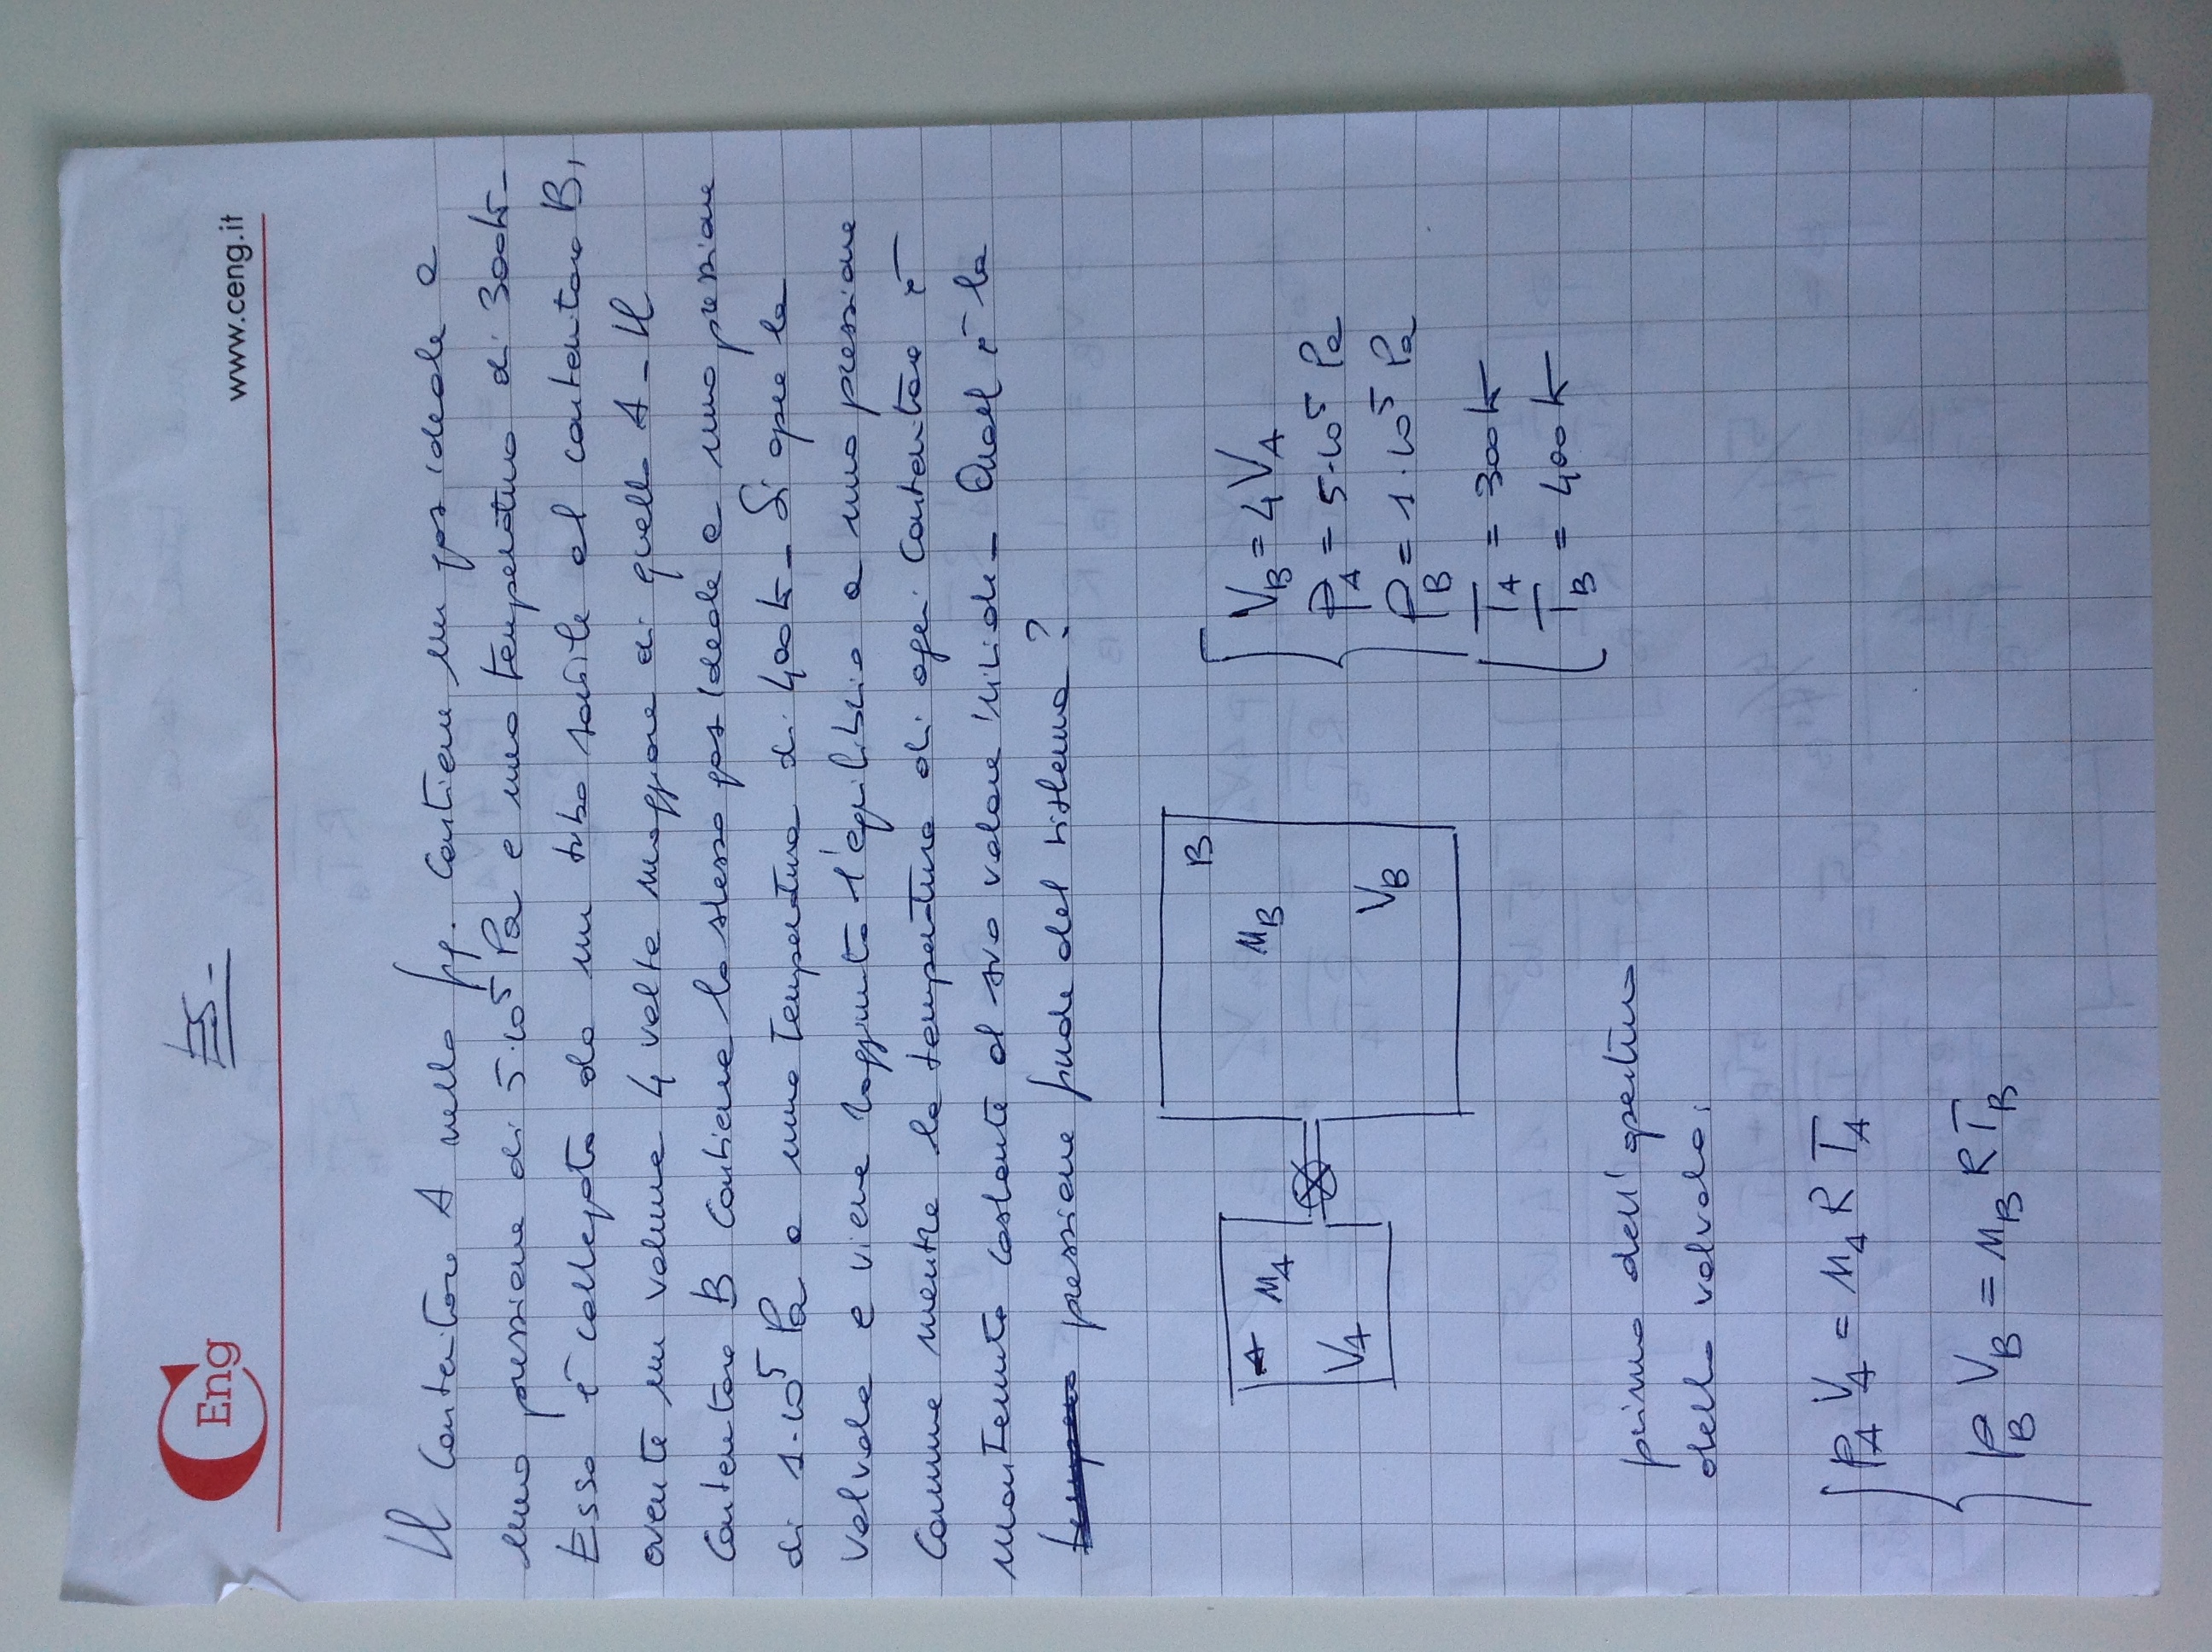 CEng
ES-
www.ceng.it
Il contenitore A nella fig. contiene un gas ideale a
una pressione di 5·10⁵ Pa e una temperatura di 300K-
Esso è collegato da un tubo sottile al contenitore B,
avente un volume 4 volte maggiore di quello A- Il
contenitore B contiene lo stesso gas ideale a una pressione
di 1·10⁵ Pa a una temperatura di 400K- Si apre la
valvola e viene raggiunto l'equilibrio a una pressione
comune mentre la temperatura di ogni contenitore è
mantenuta costante al suo valore iniziale- Qual è la
pressione finale del sistema?
A
n_A
V_A
B
n_B
V_B
V_B = 4V_A
p_A = 5·10⁵ Pa
p_B = 1·10⁵ Pa
T_A = 300K
T_B = 400K
prima dell'apertura
della valvola:
p_A V_A = n_A R T_A
p_B V_B = n_B R T_B